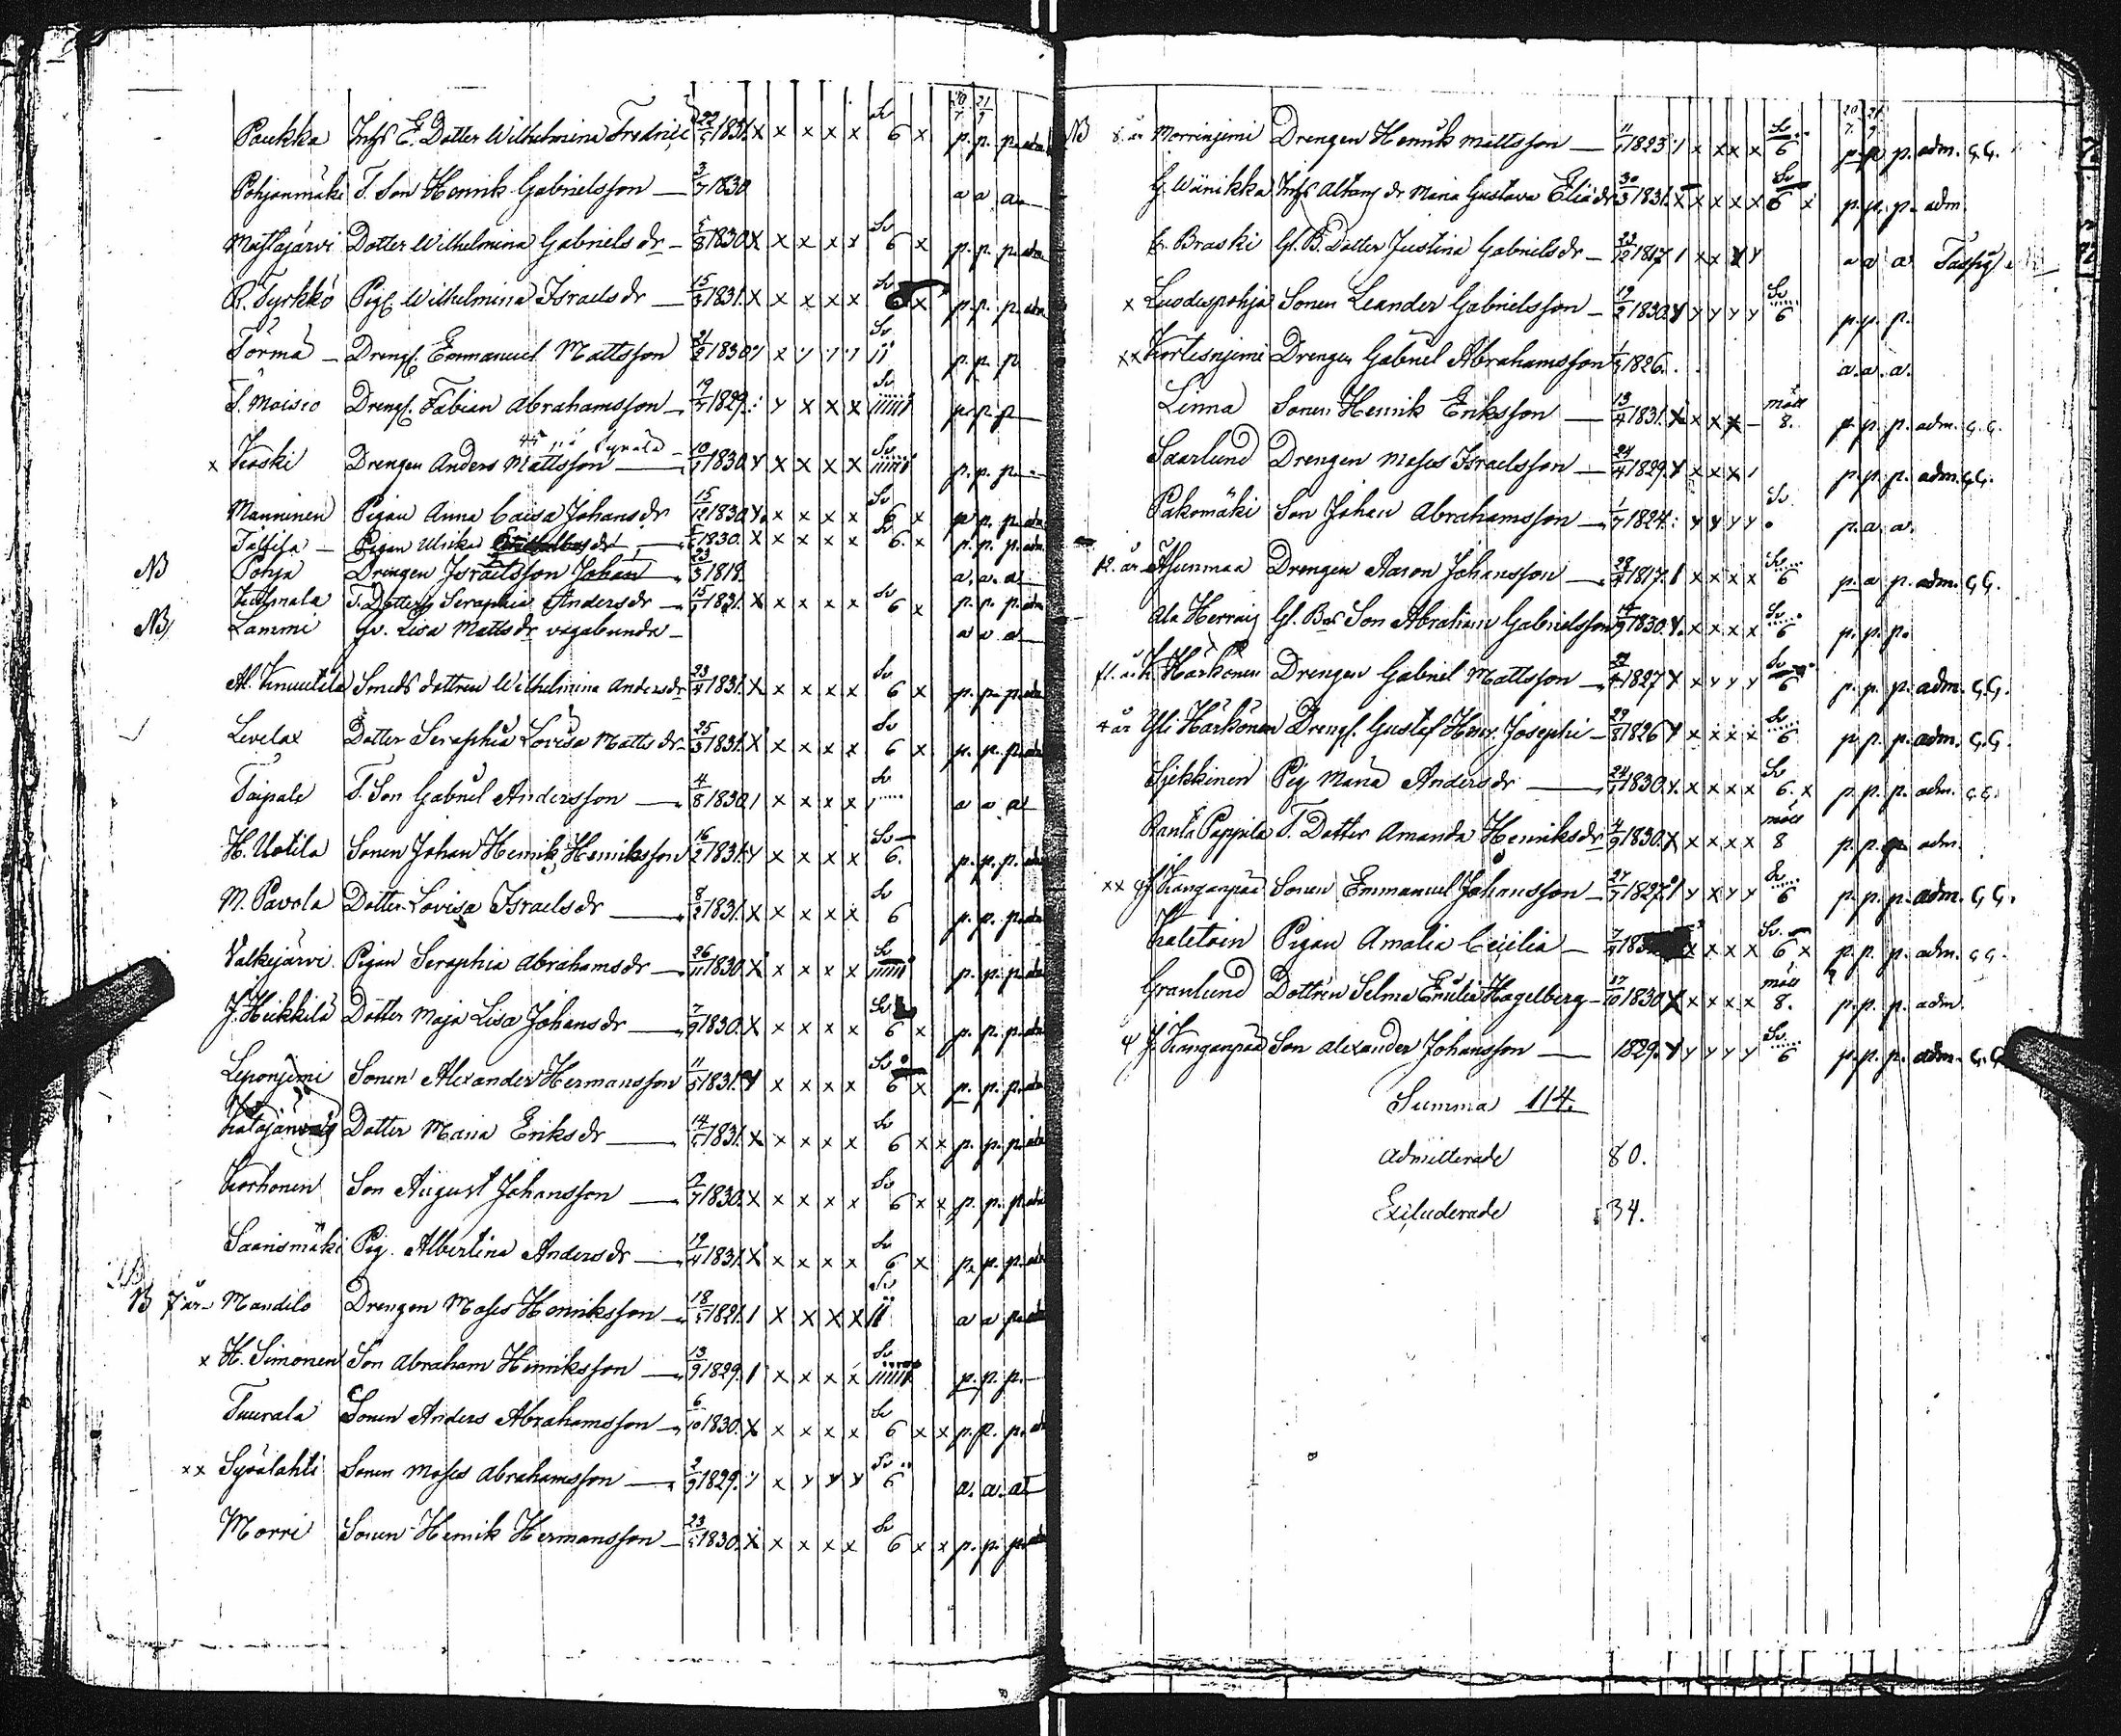 20/7 21/7
Paukka Inhs E. Dotter Wilhelmina Fredrica 22/5 1831. x x x x x Sv 6 x p. p. p. adm
Pohjanmäki T. Son Henrik Gabrielsson — 3/7 1830 a a a. —
Mattajärvi Dotter Wilhelmina Gabriels dr — 5/8 1830 x x x x x Sv 6 x p. p. p. adm
R. Tyrkkö Pig. Wilhelmina Israels dr — 15/3 1831. x x x x x Sv x p. p. p. adm
Törmä — Dreng. Emmanuel Mattsson 1830 Sv p. p. p
Moisio Dreng. Fabian Abrahamsson — 19/7 1829. y x x x Sv p. p. p —
x Koski Drengen Anders Mattsson — 10/1 1830 y x x x x Sv p. p. p. —
Manninen Pigan Anna Caisa Johans dr 15/12 1830 x x x x Sv 6 x p p. p. adm
— Pigan Ulrika dr 1830. x x x x x Sv 6. x p. p. p. adm
NB Pohja Drengen Israelsson Johan 23/3 1818. a. a. a —
T. Dotter Seraphia Anders dr — 15/5 1831. x x x x x Sv 6 x p. p. p. adm
NB Lammi Qv. Lisa Matts dr vagabunda — a a a —
Al. Knuutila Smeds dottren Wilhelmina Anders dr 23/4 1831. x x x x x Sv 6 x p. p. p. adm
Levelax Dotter Seraphia Lovisa Matts dr — 25/3 1831. x x x x x Sv 6 x p. p. p. adm
Taipale T. Son Gabriel Andersson — 4/8 1830 x x x x Sv a a a
H. Uotila Sonen Johan Henrik Henriksson 16/2 1831. y x x x x Sv 6. p. p. p. adm
M. Pavola Dotter Lovisa Israels dr — 8/2 1831. x x x x x Sv 6 p. p. p. adm
Valkejärvi Pigan Seraphia Abrahams dr — 26/11 1830. x x x x x Sv p. p. p. adm
J. Heikkilä Dotter Maja Lisa Johans dr — 7/9 1830. x x x x x Sv 6 x p. p. p. adm
Leponjemi Sonen Alexander Hermansson 11/5 1831. y x x x x Sv 6 x p. p. p. adm
Dotter Maria Eriks dr — 14/5 1831. x x x x x Sv 6 x x p. p. p. adm
Korhonen Son August Johansson — 2/7 1830. x x x x x Sv 6 x x p. p. p. adm
Saarismäki Pig. Albertina Anders dr — 19/4 1831. x x x x x Sv 6 x p. p. p. adm
NB 7 år Mandilo Drengen Moses Henriksson — 18/5 1821. x x x x Sv a a p. adm
x H. Simonen Son Abraham Henriksson — 13/9 1829. x x x x Sv p. p. p. —
Tuurala Sonen Anders Abrahamsson — 6/10 1830. x x x x x Sv 6 x x p. p. p. adm
xx Syrälahti Sonen Moses Abrahamsson — 2/9 1829. y x y y y Sv 6 a. a. a
Morri Sonen Henrik Hermansson — 23/5 1830. x x x x x Sv 6 x x p. p. p. adm
20/7. 21/7
NB 8 år Morrinjemi Drengen Henrik Mattsson — 11/1 1823 x x x x Sv 6 p. p p. adm. Ç.Ç.
G. Wänikka Inhs Altang dr Maria Gustava Eliä dr 30/3 1831. x x x x x Sv 6 x p. p. p. adm.
E. Braski Gl. B. Dotter Justina Gabriels dr — 22/12 1817 x x y y a a a
x Luodespohja Sonen Leander Gabrielsson — 19/2 1830. y y y y y Sv 6 p. p. p.
xx Kortesnjemi Drengen Gabriel Abrahamsson 1826. a. a. a.
Linna Sonen Henrik Eriksson — 13/4 1831. x x x x — mått 8. p. p. p. adm. Ç.Ç.
Saarlund Drengen Moses Israelsson — 24/4 1829. y x x x p. p. p. adm. Ç.Ç.
Pakomäki Son Johan Abrahamsson — 1/7 1824. y y y y Sv p. a. a.
12 år Ahunmaa Drengen Aaron Johansson — 28/4 1817. x x x x Sv 6 p. a p. adm. Ç.Ç.
Ala Herraig Gl. Bas Son Abraham Gabrielsson 14/9 1830. y. x x x x Sv 6 p. p. p.
11. år K. Härkönen Drengen Gabriel Mattsson — 1827 y x y y y Sv 6 p. p. p. adm. Ç.Ç.
4 år Yli Härkönen Dreng. Gustaf Henr. Josephi — 29/8 1826 y x x x x Sv 6 p. p. p. adm. Ç.Ç.
Sjekkinen Pig. Maria Anders dr — 24/1 1830. x x x x x Sv 6. x p. p. p. adm. Ç.Ç.
Ranta Pappila T. Dotter Amanda Henriks dr 4/9 1830. x x x x x mått 8 p. p. p adm.
xx J. Kanganpää Sonen Emmanuel Johansson — 27/7 1827. y x y y Sv 6 p. p. p. adm. Ç.Ç.
Kaletoin Pigan Amalia Cecilia — x x x x Sv. 6 x p. p. p. adm. Ç.Ç.
Granlund Dottren Selma Emilia Hagelberg — 17/10 1830. x x x x x mått 8. p. p. p. adm.
4 J. Kanganpää Son Alexander Johansson — 1829. y y y y y Sv 6 p. p. p. adm. Ç.Ç
Summa 114.
Admitterade 80.
Excluderade 34.